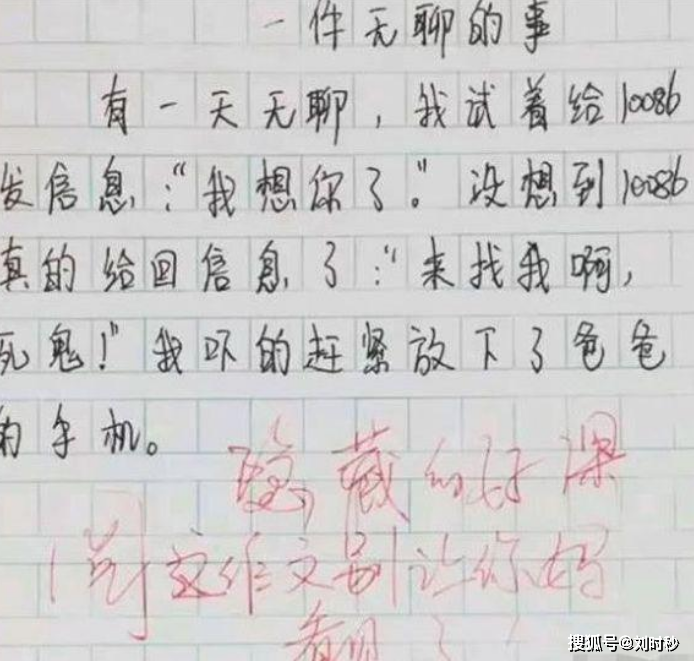 一件无聊的事
有一天无聊，我试着给10086
发信息：“我想你了。”没想到10086
真的给回信息了：“来找我啊，
死鬼！”我吓的赶紧放下了爸爸
的手机。
隐藏的好深
阅 这作文别让你妈
看见了！
搜狐号@刘时秒